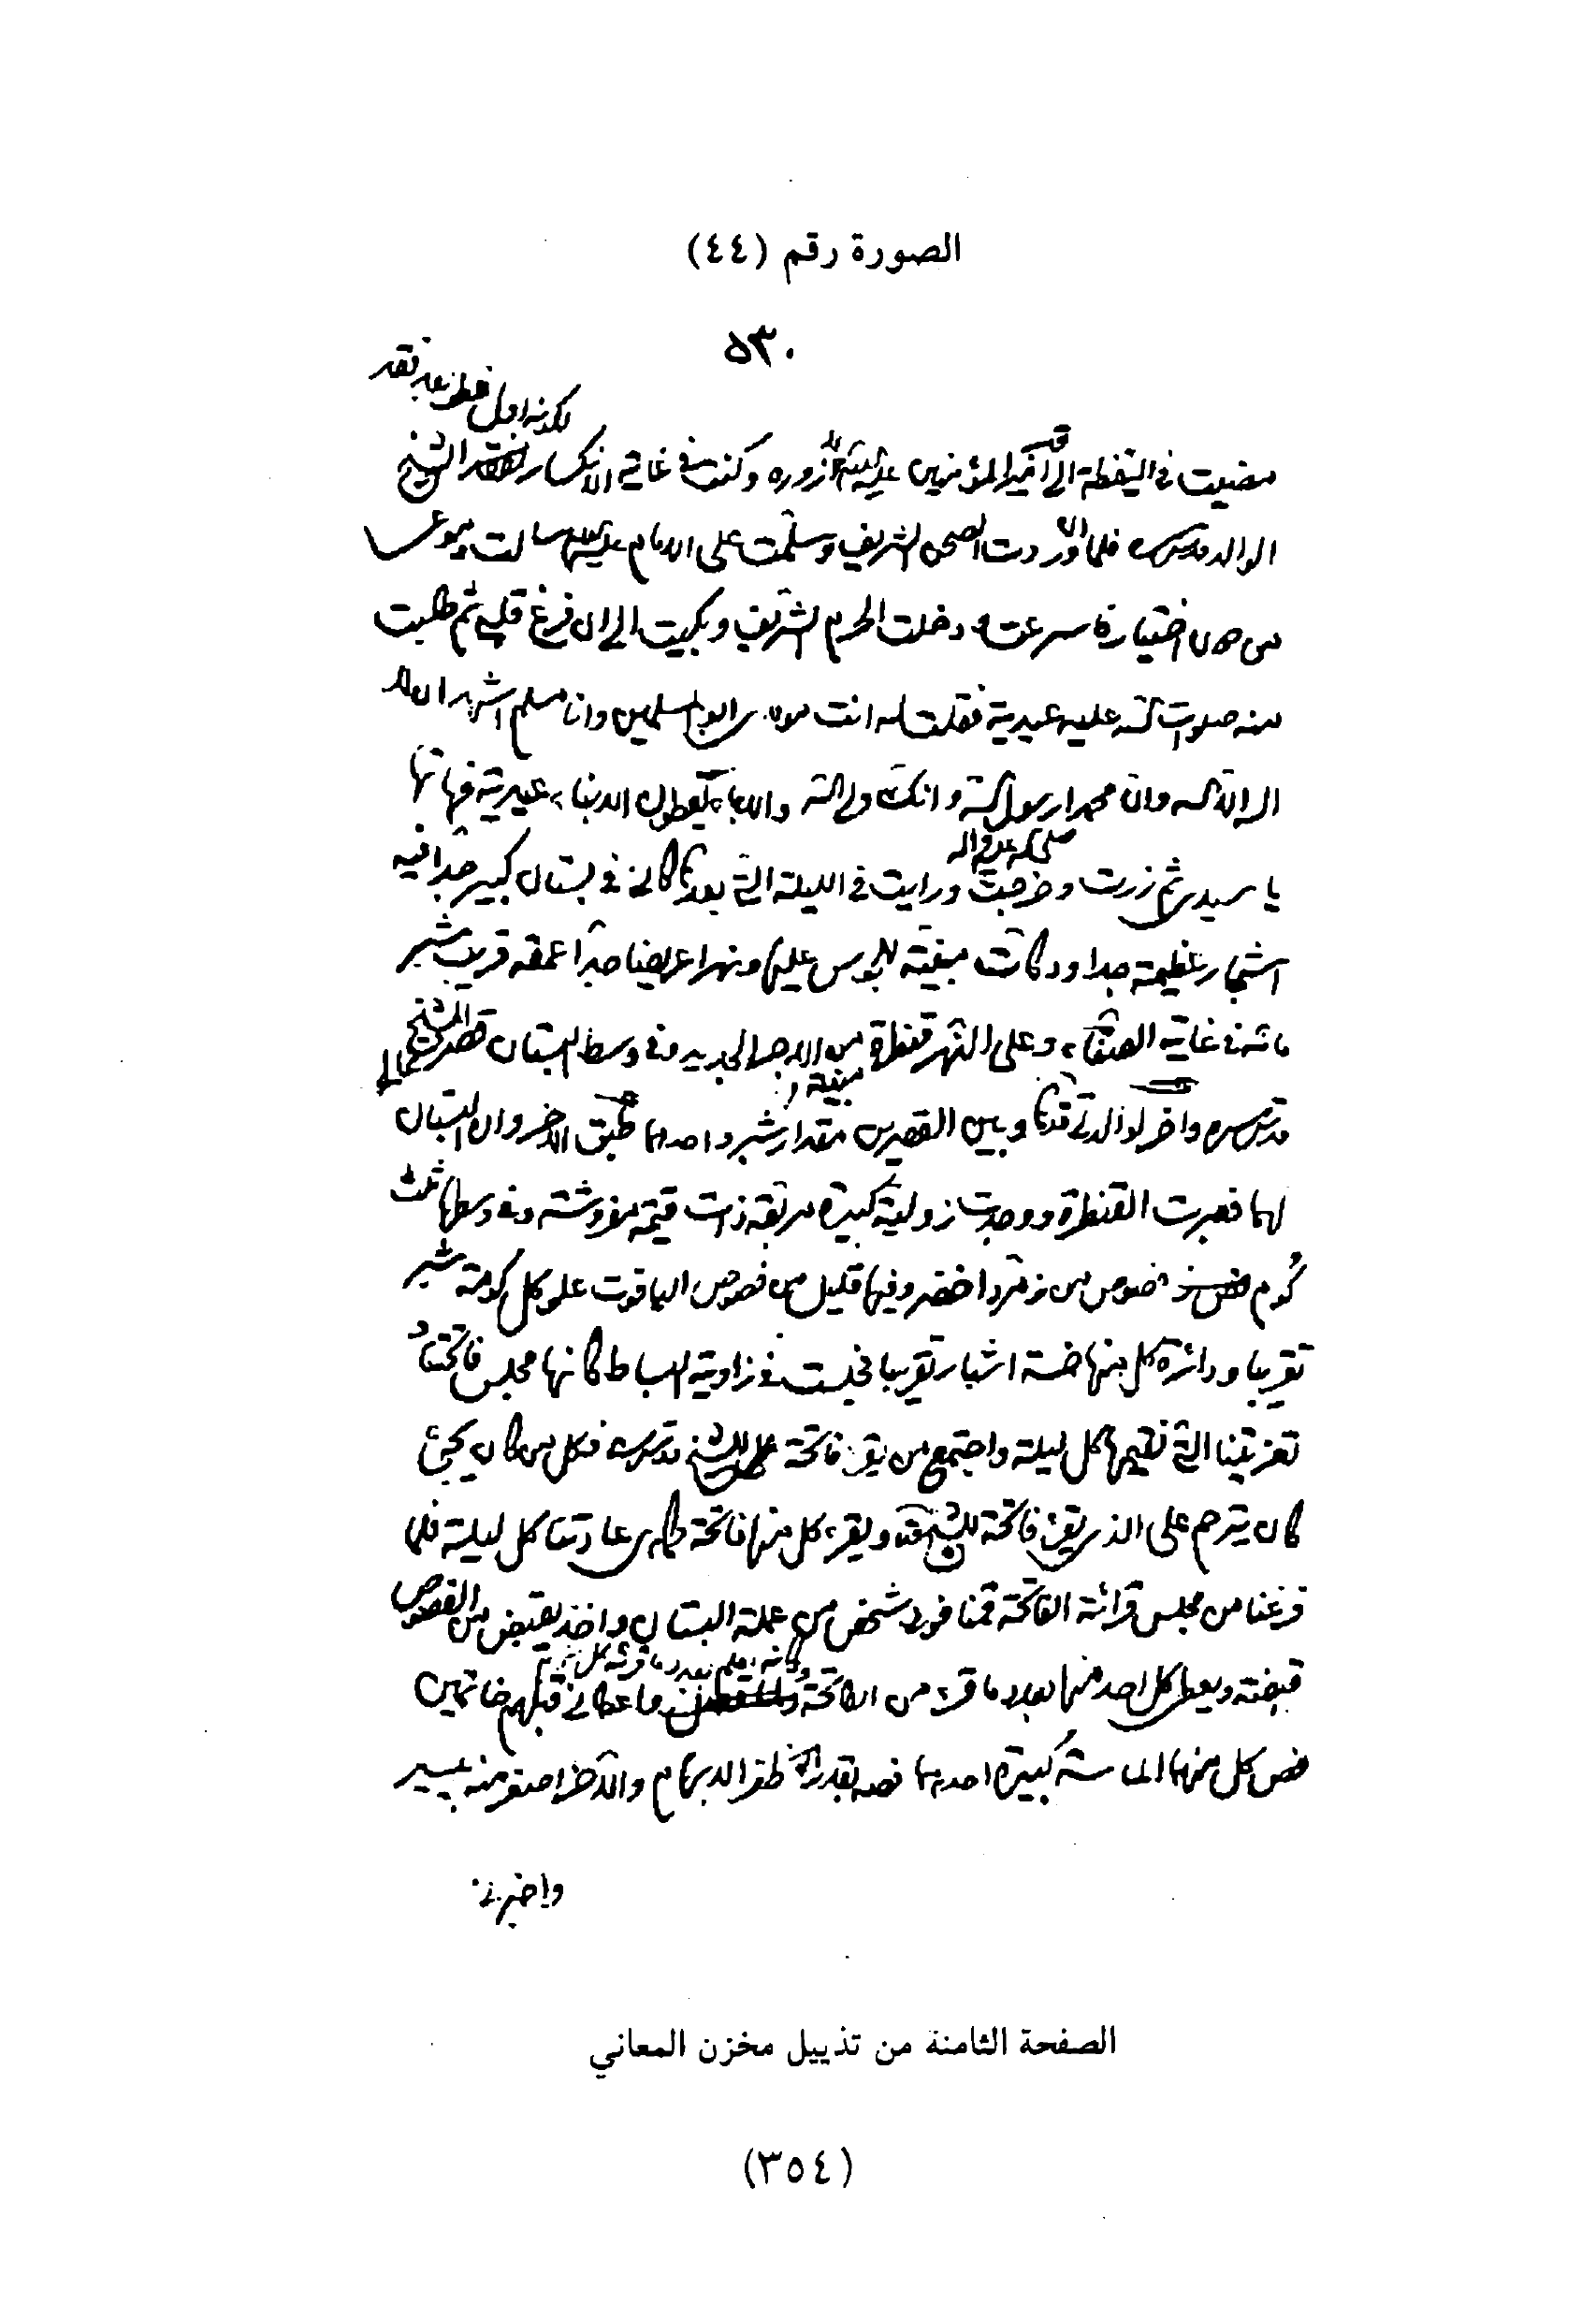 الصورة رقم (٤٤)
٥٣٠
لكونه اول فطر بعد فقد
مضيت في اليقظة الى امير المؤمنين عليه السلام ازوره وكنت في غاية الانكسار الشيخ
الوالد قدس سره فلما وردت الصحن الشريف وسلمت على الامام عليه السلام سالت دموعي
من دون اختيار فاسرعت ودخلت الحرم الشريف وبكيت الى ان فرغ قلبي ثم طلبت
منه صلوات الله عليه عيدية فقلت له انت مولاي ابو المسلمين وانا مسلم اشهد ان لا
اله الا الله وان محمدا رسول الله وانك ولي الله والاباء يعطون الابناء عيدية فهاتها
صلى الله عليه واله
يا سيدي ثم زرت وخرجت ورايت في الليلة التي بعدها كاني في بستان كبير جدا فيه
اشجار عظيمة جدا ودكات مبنية للجلوس عليها ونهرا عريضا جدا عمقه قريب شبر
مائه في غاية الصفاء وعلى النهر قنطرة من الاجر الجديد وفي وسط البستان قصر للشيخ
مبنية
قدس سره واخر لوالدتي وبين القصرين مقدار شبر واحدهما طبق الاخر وان البستان
لهما فعبرت القنطرة ووجدت زولية كبيرة ذات قيمة مفروشة وفي وسطها ثلث
كوم فصوص من زمرد اخضر وفيها قليل من فصوص الياقوت علو كل كومة شبر
تقريبا ودائرة كل منها خمسة اشبار تقريبا فجلست في زاوية البساط كانها مجلس فاتحتنا و
تعزيتنا التي نقيمها كل ليلة واجتمع من يقرء فاتحة للشيخ قدس سره فكل من كان يجيئ
كان يترحم على الذي يقرء فاتحة للشيخ قده ويقرء كل منها فاتحة عادتنا كل ليلة فلما
فرغنا من مجلس قرائة الفاتحة قمنا فورد شخص من عملة البستان واخذ يقبض من الفصوص
قبضته ويعطي كل احد منها بعدد ما قرء من الفاتحة فاعطاني قبلهم خاتمين
فص كل منهما الماسة كبيرة احدهما فصه بقدر ظفر الابهام والاخر اصغر منه بيسير
واخبرني
الصفحة الثامنة من تذييل مخزن المعاني
(٣٥٤)